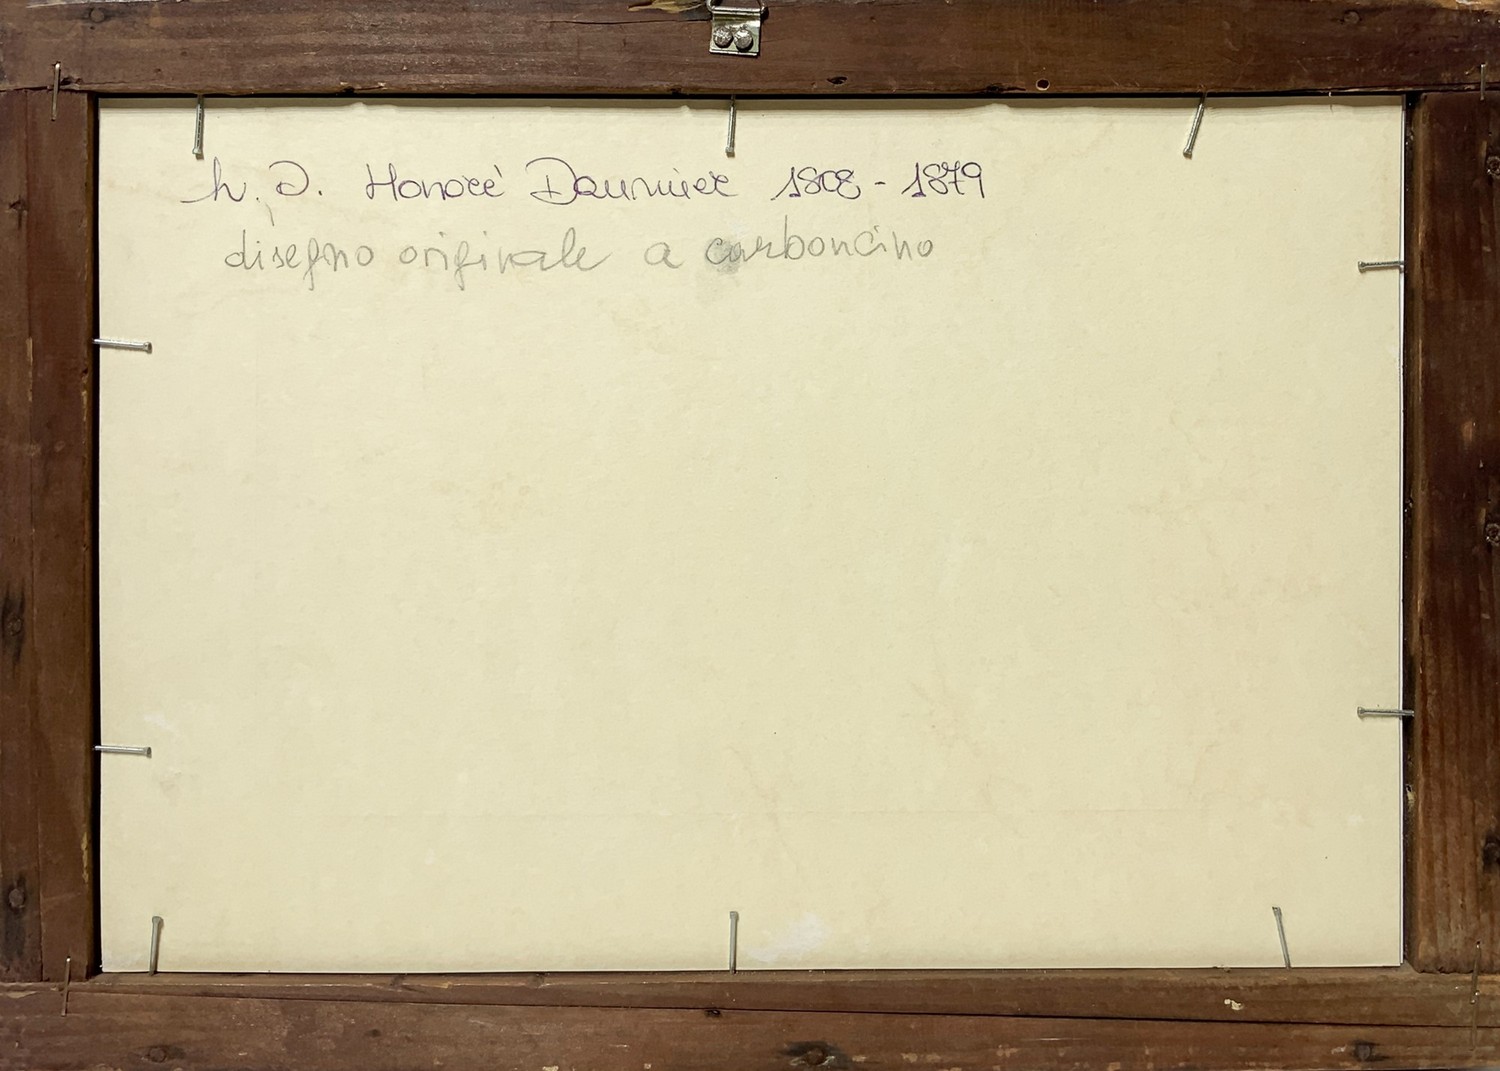 h. D. Honoré Daumier 1808 - 1879
disegno originale a carboncino